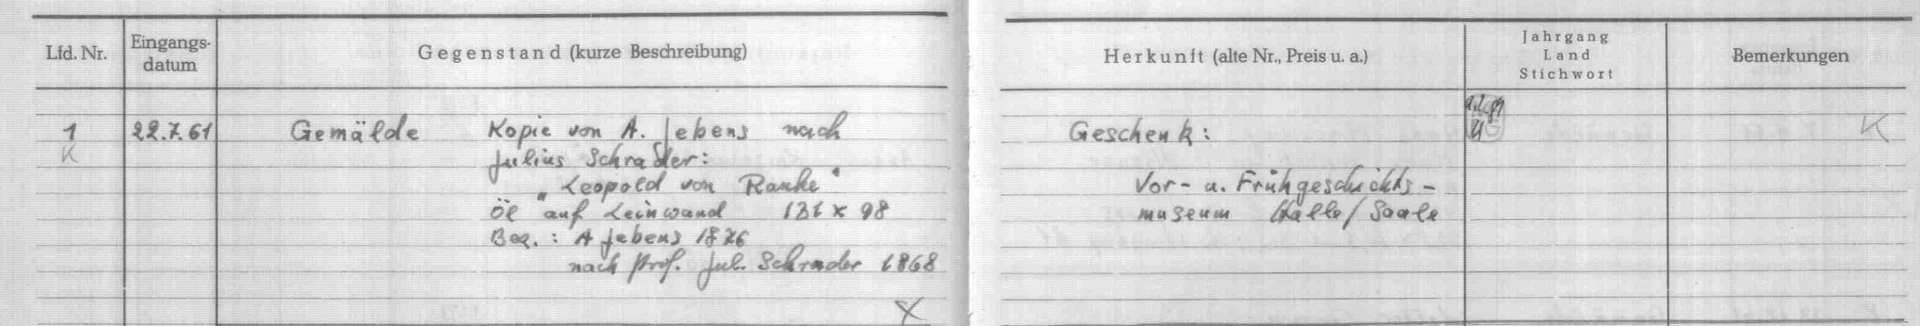 Lfd. Nr.
Eingangs-
datum
Gegenstand (kurze Beschreibung)
Herkunft (alte Nr., Preis u. a.)
Jahrgang
Land
Stichwort
Bemerkungen
1 22.7.61 Gemälde Kopie von A. Jebens nach
K
Julius Schrader:
"Leopold von Ranke"
Öl auf Leinwand 131 x 98
Bez.: A Jebens 1876
nach Prof. Jul. Schrader 1868
X
Geschenk:
K
Vor- u. Frühgeschichts-
museum Halle/Saale